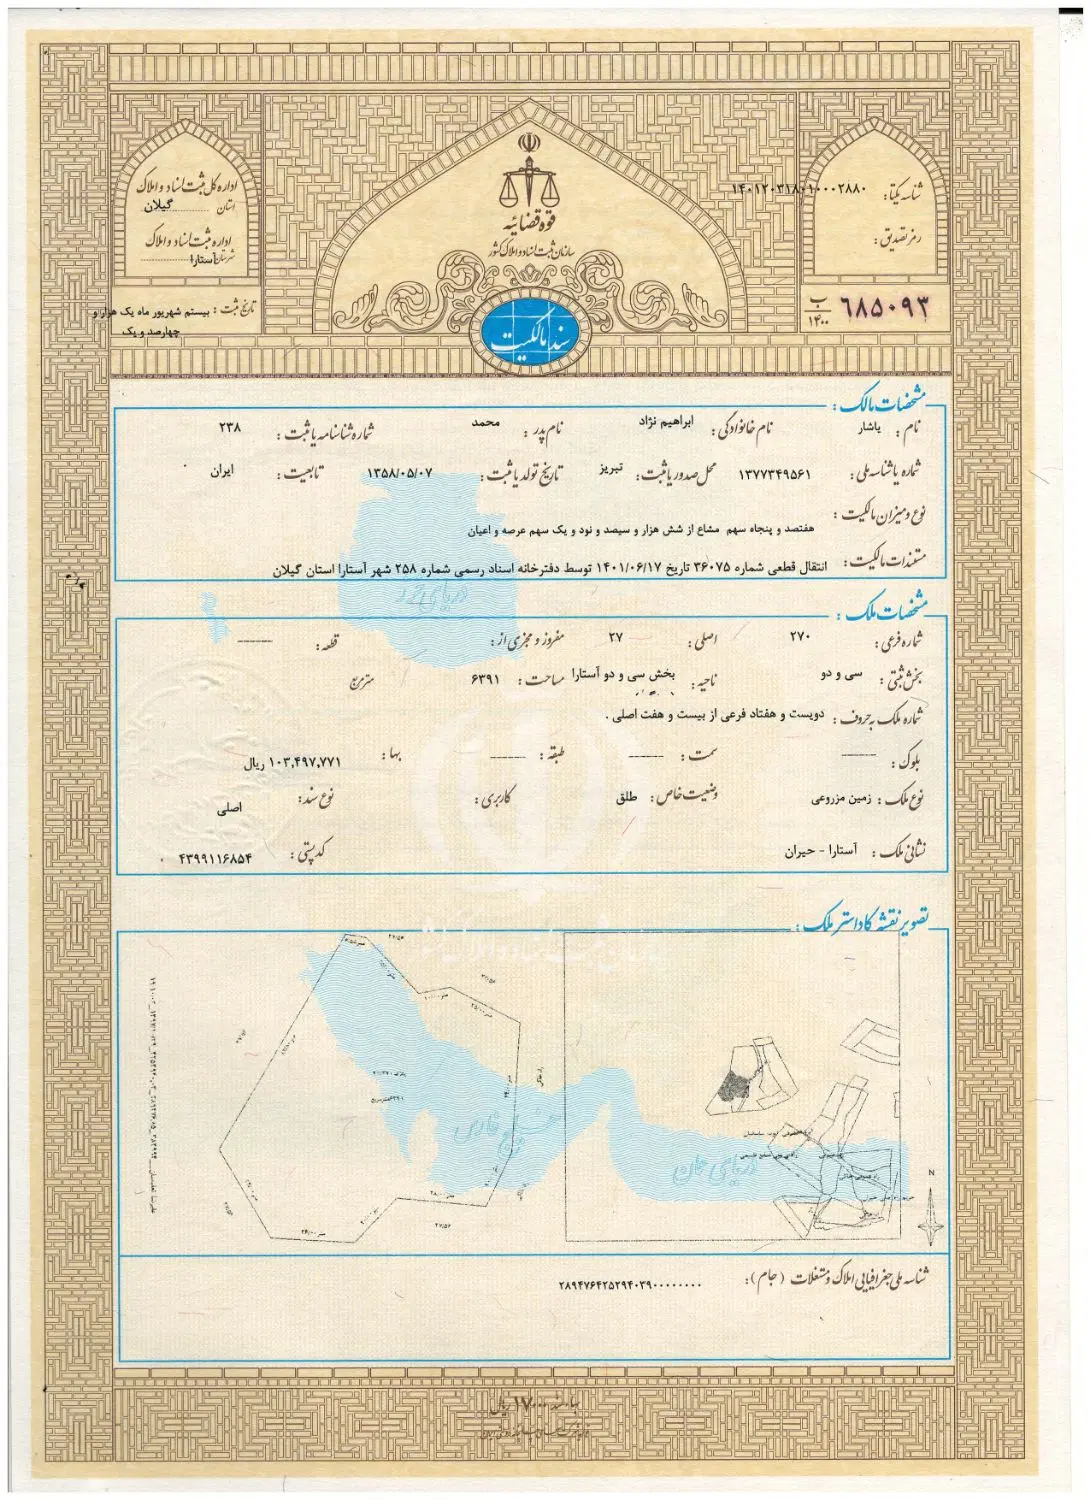 قوه قضائیه
سازمان ثبت اسناد و املاک کشور
سند مالکیت
شناسه یکتا: ۱۴۰۱۲۰۳۱۸۰۱۰۰۰۲۸۸۰
رمز تصدیق:
۶۸۵۰۹۳ ب ۱۴۰۰
اداره کل ثبت اسناد و املاک
استان گیلان
اداره ثبت اسناد و املاک
شهرستان آستارا
تاریخ ثبت: بیستم شهریور ماه یک هزار و
چهارصد و یک
مشخصات مالک:
نام: یاشار نام خانوادگی: ابراهیم نژاد نام پدر: محمد شماره شناسنامه یا ثبت: ۲۳۸
شماره یا شناسه ملی: ۱۳۷۷۳۴۹۵۶۱ محل صدور یا ثبت: تبریز تاریخ تولد یا ثبت: ۱۳۵۸/۰۵/۰۷ تابعیت: ایران
نوع و میزان مالکیت:
هفتصد و پنجاه سهم مشاع از شش هزار و سیصد و نود و یک سهم عرصه و اعیان
مستندات مالکیت: انتقال قطعی شماره ۳۶۰۷۵ تاریخ ۱۴۰۱/۰۶/۱۷ توسط دفترخانه اسناد رسمی شماره ۲۵۸ شهر آستارا استان گیلان
دریای خزر
مشخصات ملک:
شماره فرعی: ۲۷۰ اصلی: ۲۷ مفروز و مجزی از: قطعه: ------
بخش ثبتی: سی و دو ناحیه: بخش سی و دو آستارا مساحت: ۶۳۹۱ مترمربع
شماره ملک به حروف: دویست و هفتاد فرعی از بیست و هفت اصلی .
بلوک: ------ سمت: ------ طبقه: ------ بها: ۱۰۳,۴۹۷,۷۷۱ ریال
نوع ملک: زمین مزروعی وضعیت خاص: طلق کاربری: نوع سند: اصلی
نشانی ملک: آستارا - حیران کد پستی: ۴۳۹۹۱۱۶۸۵۴
تصویر نقشه کاداستر ملک:
خلیج فارس
دریای عمان
N
شناسه ملی جغرافیایی املاک و مستغلات (جام): ۲۸۹۴۷۶۴۲۵۲۹۴۰۳۹۰۰۰۰۰۰۰۰